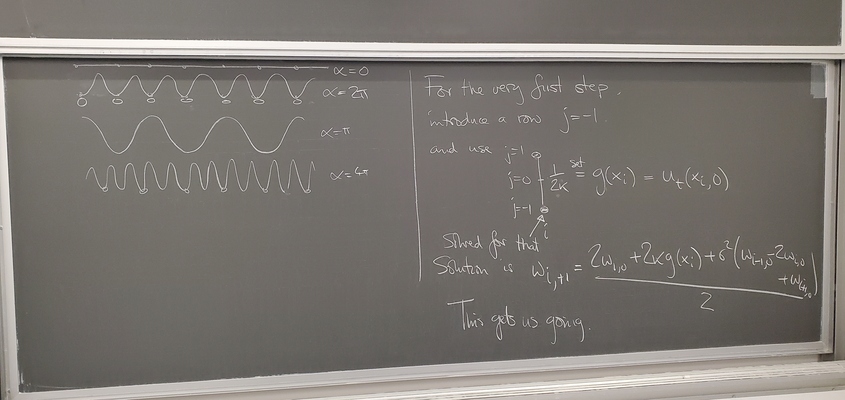 α=0
α=2π
α=π
α=4π
For the very first step,
introduce a row j=-1.
and use
j=1
j=0 1/2k set= g(xᵢ) = uₜ(xᵢ,0)
j=-1
i
Solved for that
Solution is wᵢ,₊₁ = (2wᵢ,₀ + 2kg(xᵢ) + σ²(wᵢ₋₁,₀ - 2wᵢ,₀ + wᵢ₊₁,₀)) / 2
This gets us going.